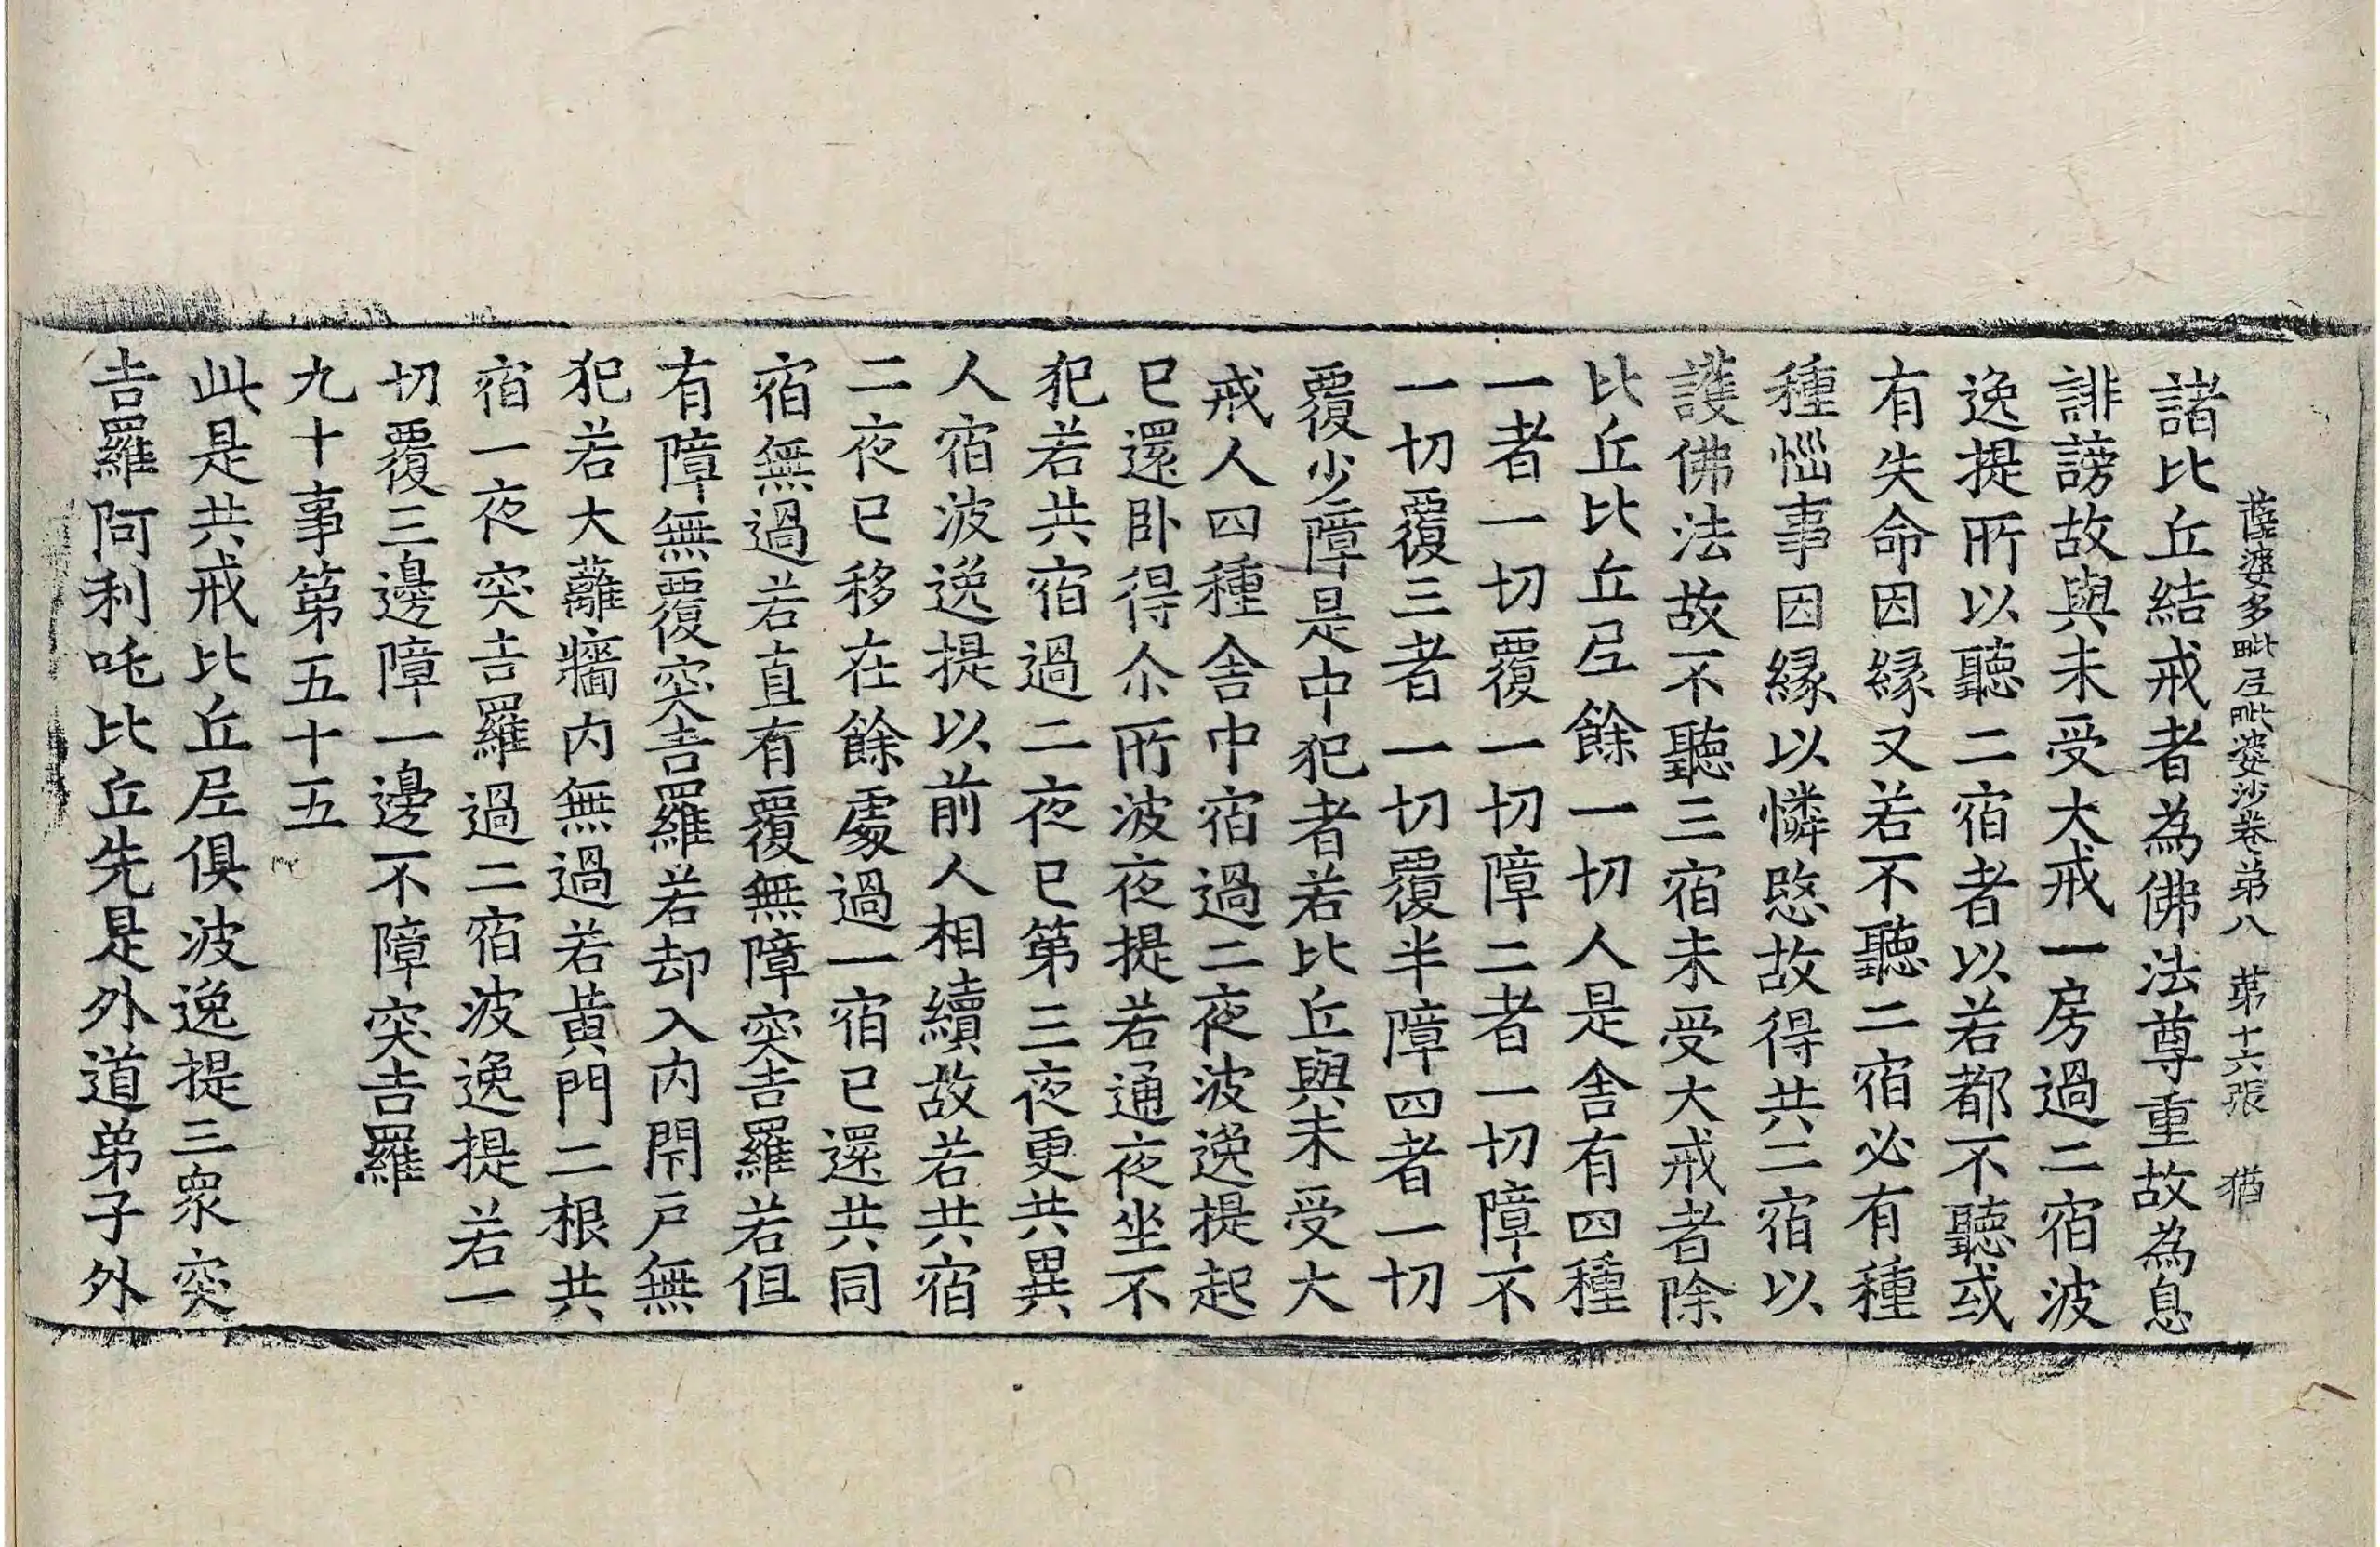 薩婆多毗尼毗婆沙卷第八 第十六張 猶
諸比丘結戒者為佛法尊重故為息
誹謗故與未受大戒一房過二宿波
逸提所以聽二宿者以若都不聽或
有失命因緣又若不聽二宿必有種
種惱事因緣以憐愍故得共二宿以
護佛法故不聽三宿未受大戒者除
比丘比丘尼餘一切人是舍有四種
一者一切覆一切障二者一切障不
一切覆三者一切覆半障四者一切
覆少障是中犯者若比丘與未受大
戒人四種舍中宿過二夜波逸提起
已還卧得尒所波夜提若通夜坐不
犯若共宿過二夜已第三夜更共異
人宿波逸提以前人相續故若共宿
二夜已移在餘處過一宿已還共同
宿無過若直有覆無障突吉羅若但
有障無覆突吉羅若却入內閇戶無
犯若大蘺牆內無過若黃門二根共
宿一夜突吉羅過二宿波逸提若一
切覆三邊障一邊不障突吉羅
九十事第五十五
此是共戒比丘尼俱波逸提三眾突
吉羅阿利吒比丘先是外道弟子外